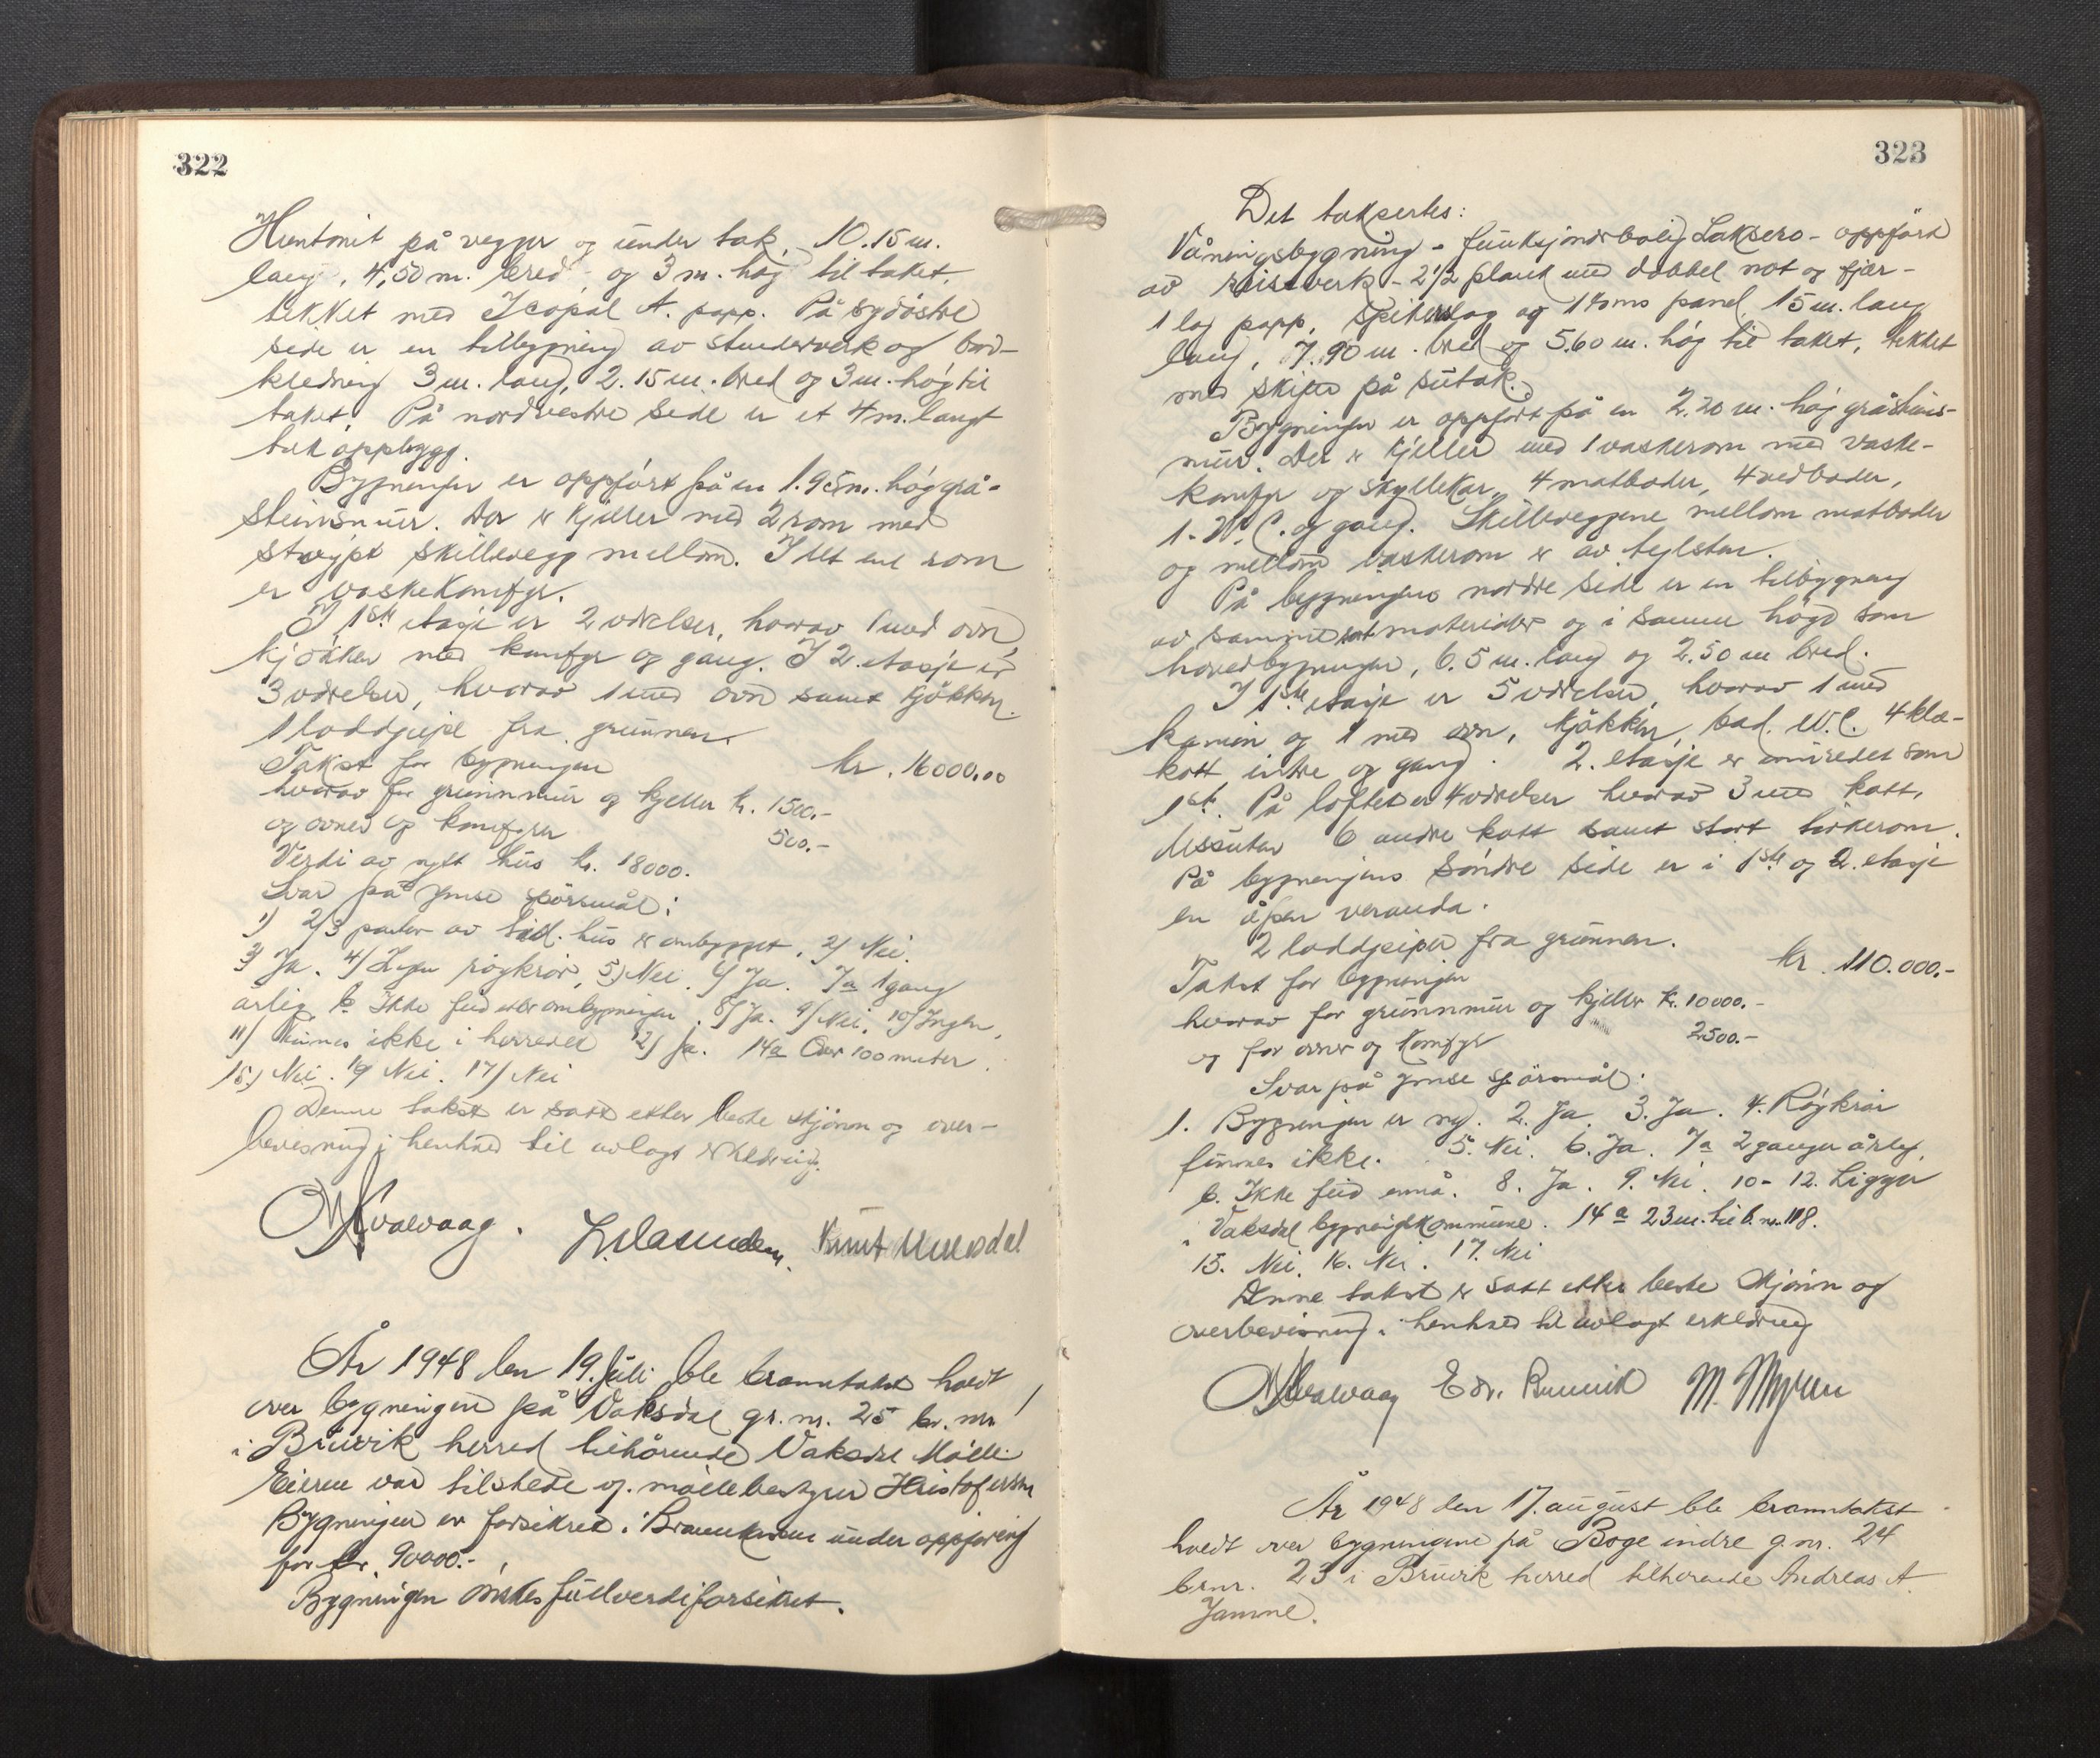 322
Huntonit på vegger og under tak. 10.15 m.
lang, 4,50 m. bred og 3 m. høg til taket.
tekket med Icopal A. papp. På sydöstre
side er en tilbygning av stenderverk og bord-
kledning 3 m. lang, 2.15 m. bred og 3 m. høg til
taket. På nordvestre side er et 4 m. langt
tak oppbygg.
Bygningen er oppført på en 1.95 m. høg grå-
steinsmur. Der er kjeller med 2 rom med
støypt skillevegg mellom. I det ene rom
er vaskekomfyr.
I 1ste etasje er 2 værelser, hvorav 1 med ovn
kjökken med komfyr og gang. I 2. etasje er
3 værelser, hvorav 1 med ovn samt kjökken.
1 loddpipe fra grunnen.
Takst for bygningen kr. 16000.00
hvorav for grunnmur og kjeller kr. 1500.-
og ovner og komfyrer 500.-
Verdi av nytt hus kr. 18000.
Svar på ymse spörsmål:
1) 2/3 parter av hus er ombygget. 2) Nei.
3) Ja. 4) Ingen rögkrör, 5) Nei. 6) Ja. 7a 1 gang
årlig b. Ikke feid etter ombygningen. 8) Ja. 9) Nei. 10) Ingen,
11) Finnes ikke i herredet 12) Ja. 14a Over 100 meter.
15) Nei. 16) Nei. 17) Nei
Denne takst er satt etter beste skjönn og over-
bevisning i henhold til avlagt erklæring.
Kvalvaag. Knut
År 1948 den 19. juli ble branntakst holdt
over bygningen på Vaksdal gr. nr. 25 br. nr 1
i Bruvik herred tilhörende Vaksdal Mölle.
Eieren var tilstede v. möllebestyrer Kristofersen
Bygningen er forsikret i Brannkassen under oppföring
for kr. 90000.-
Bygningen önskes fullverdiforsikret.
323
Det taksertes:
Våningsbygning - funksjonærbolig Laksero - oppfört
av reisverk - 2½ plank med dobbel not og fjær -
1 lag papp, spikerslag og 1 toms panel, 15 m. lang
lang, 7.90 m. bred og 5.60 m. høg til taket, tekket
med skifer på sutak.
Bygningen er oppfört på en 2.20 m. høg gråsteins-
mur. Der er kjeller med 1 vaskerom med vaske-
komfyr og skyllekar, 4 matboder, 4 vedboder,
1 W. C. og gang. Skilleveggene mellom matboder
og mellom vaskerom er av teglsten.
På bygningens nordre side er en tilbygning
av samme materialer og i samme högd som
hovedbygningen, 6.5 m. lang og 2.50 m bred.
I 1ste etasje er 5 værelser, hvorav 1 med
kamin og 1 med ovn, kjökken, bad. W.C. 4 kle-
kott, entre og gang. 2. etasje er innredet som
1ste. På loftet er 4 værelser hvorav 3 med kott,
dessuten 6 andre kott samt stort törkerom.
På bygningens söndre side er i 1ste og 2. etasje
en åpen veranda.
2 loddpiper fra grunnen.
Takst for bygningen kr. 110.000.-
hvorav for grunnmur og kjeller kr. 10000.-
og for ovner og komfyr 2500.-
Svar på ymse spörsmål:
1. Bygningen er ny. 2. Ja. 3. Ja. 4. Rögkrör
finnes ikke. 5. Nei. 6. Ja. 7a 2 ganger årleg.
b. Ikke feid ennå. 8. Ja. 9. Nei. 10- 12. Ligger
i Vaksdal bygningskommune. 14 a 23 m. til b. nr. 118.
15. Nei. 16. Nei. 17. Nei
Denne takst er satt etter beste skjönn og
overbevisning i henhold til avlagt erklæring
Kvalvaag Edv. M. Myren
År 1948 den 17. august ble branntakst
holdt over bygningene på Boge indre g.nr. 24
br.nr. 23 i Bruvik herred tilhörende Andreas A.
Jamne.